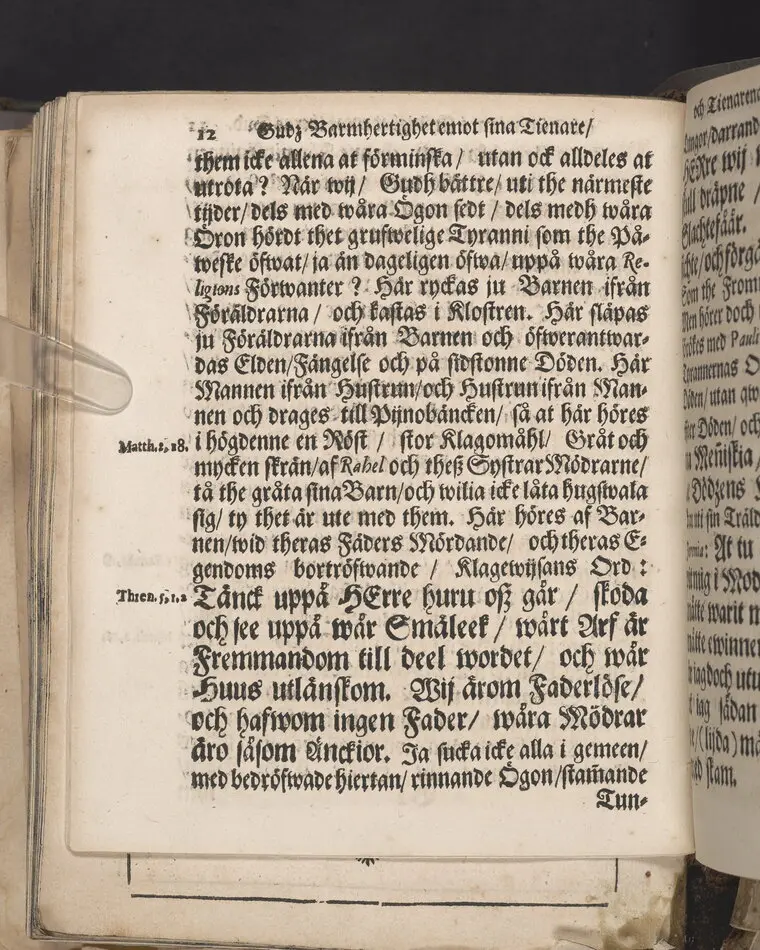 12 Gudz Barmhertighet emot sina Tienare/
them icke allena at förminska / utan ock alldeles at
utrota? När wij / Gudh bättre/ uti the närmeste
tijder/ dels med wåra Ögon sedt / dels medh wåra
Öron hördt thet grufwelige Tyranni som the På-
weske öfwat/ ja än dageligen öfwa/ uppå wåra Re-
ligions Förwanter? Här ryckas ju Barnen ifrån
Föräldrarna / och kastas i Klostren. Här släpas
ju Föräldrarna ifrån Barnen och öfwerantwar-
das Elden/Fängelse och på sidstonne Döden. Här
Mannen ifrån Hustrun/och Hustrun ifrån Man-
nen och drages till Pijnobäncken/ så at här höres
Matth. 2, 18. i högdenne en Röst / stor Klagomåhl/ Gråt och
mycken skrän/af Rahel och theß Systrar Mödrarne/
tå the gråta sina Barn/och wilia icke låta hugswala
sig/ ty thet är ute med them. Här höres af Bar-
nen/wid theras Fäders Mördande/ och theras E-
gendoms bortröfwande / Klagewijsans Ord :
Thren. 5, 1, 2 Tänck uppå HErre huru oß går / skoda
och see uppå wår Smäleek / wårt Arf är
Fremmandom till deel wordet/ och wår
Huus utlänskom. Wij ärom Faderlöse/
och hafwom ingen Fader/ wåra Mödrar
äro såsom Änckior. Ja sucka icke alla i gemeen/
med bedröfwade hiertan/ rinnande Ögon/stam̃ande
Tun-
och Tienarena
/darrand
HERre wij
dräpne /
Slachtefåår.
/och förgå
Som the From
Men hörer doch
med Pauli
Tyrannernas
Döden/ utan
Döden/ och
Men̄iskia
Dödzens
uti sin Träld
: At tu
i Mod
warit
ewinner
iag doch utu
iag sådan
/(lijda) må
stam.